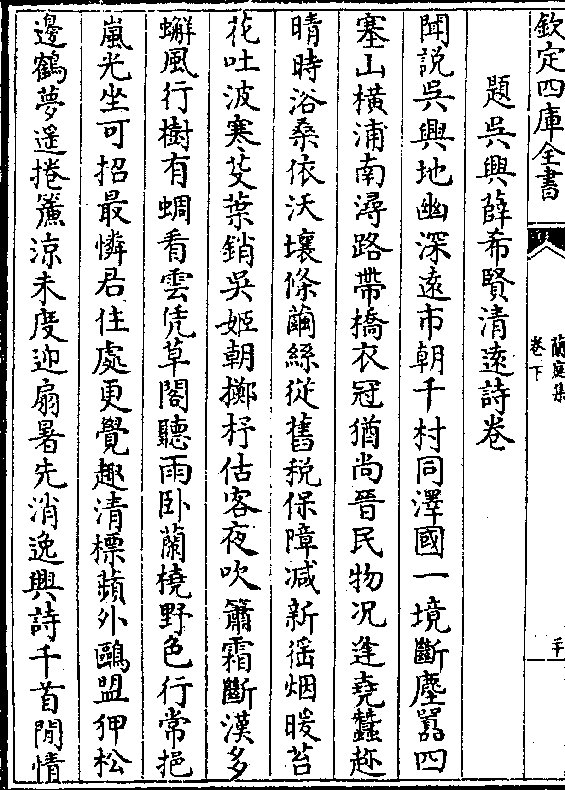 欽定四庫全書
蘭庭集
卷下
題吳興薛希賢清遠詩卷
聞說吳興地幽深遠市朝千村同澤國一境斷塵囂四
塞山橫浦南潯路帶橋衣冠猶尚晉民物况逢堯蠶趂
晴時浴桑依沃壤條繭絲從舊税保障减新徭烟暖苔
花吐波寒芰葉銷吳姬朝擲杼估客夜吹簫霜斷漢多
蠏風行樹有蜩看雲凭草閣聽雨卧蘭橈野色行常挹
嵐光坐可招最憐君住處更覺趣清標蘋外鷗盟狎松
邊鶴夢遥捲簾凉未度迎扇暑先消逸興詩千首閒情